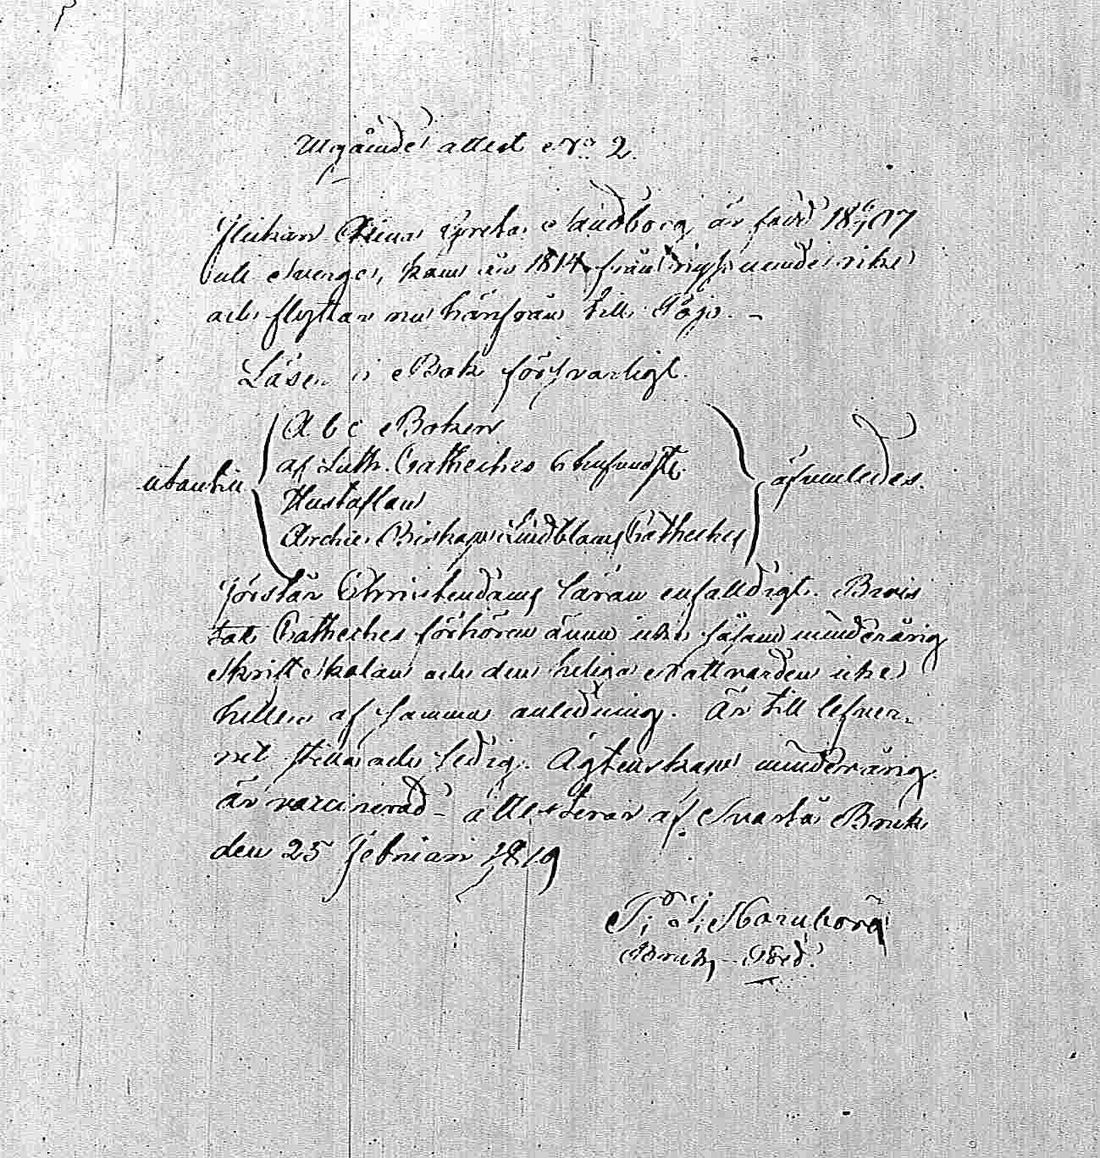 Utgående attest No 2.
Flickan Anna Greta Sandborg, är född 1807
uti Sverge, kom år 1814 från
och flyttar nu härifrån till Pojo. -
Läser i Bok försvarligt.
A b c Boken
af Luth. Catheches 6 hufvudst.
utantill
Hustaflan
Archie Biskop Lindbloms Catheches
äfvenledes.
Förstår Christendoms läran enfalldigt. Bevis
tat Catheches förhören ännu såsom minderårig
Skriftskolan och den heliga Nattvarden icke
heller af samma anledning. Är till lefver-
net stilla och ledig. Ägtenskaps minderårig.
är vaccinerad - attesterar af Svartå Bruk
den 25 Februari 1819
Bruks-Pred.